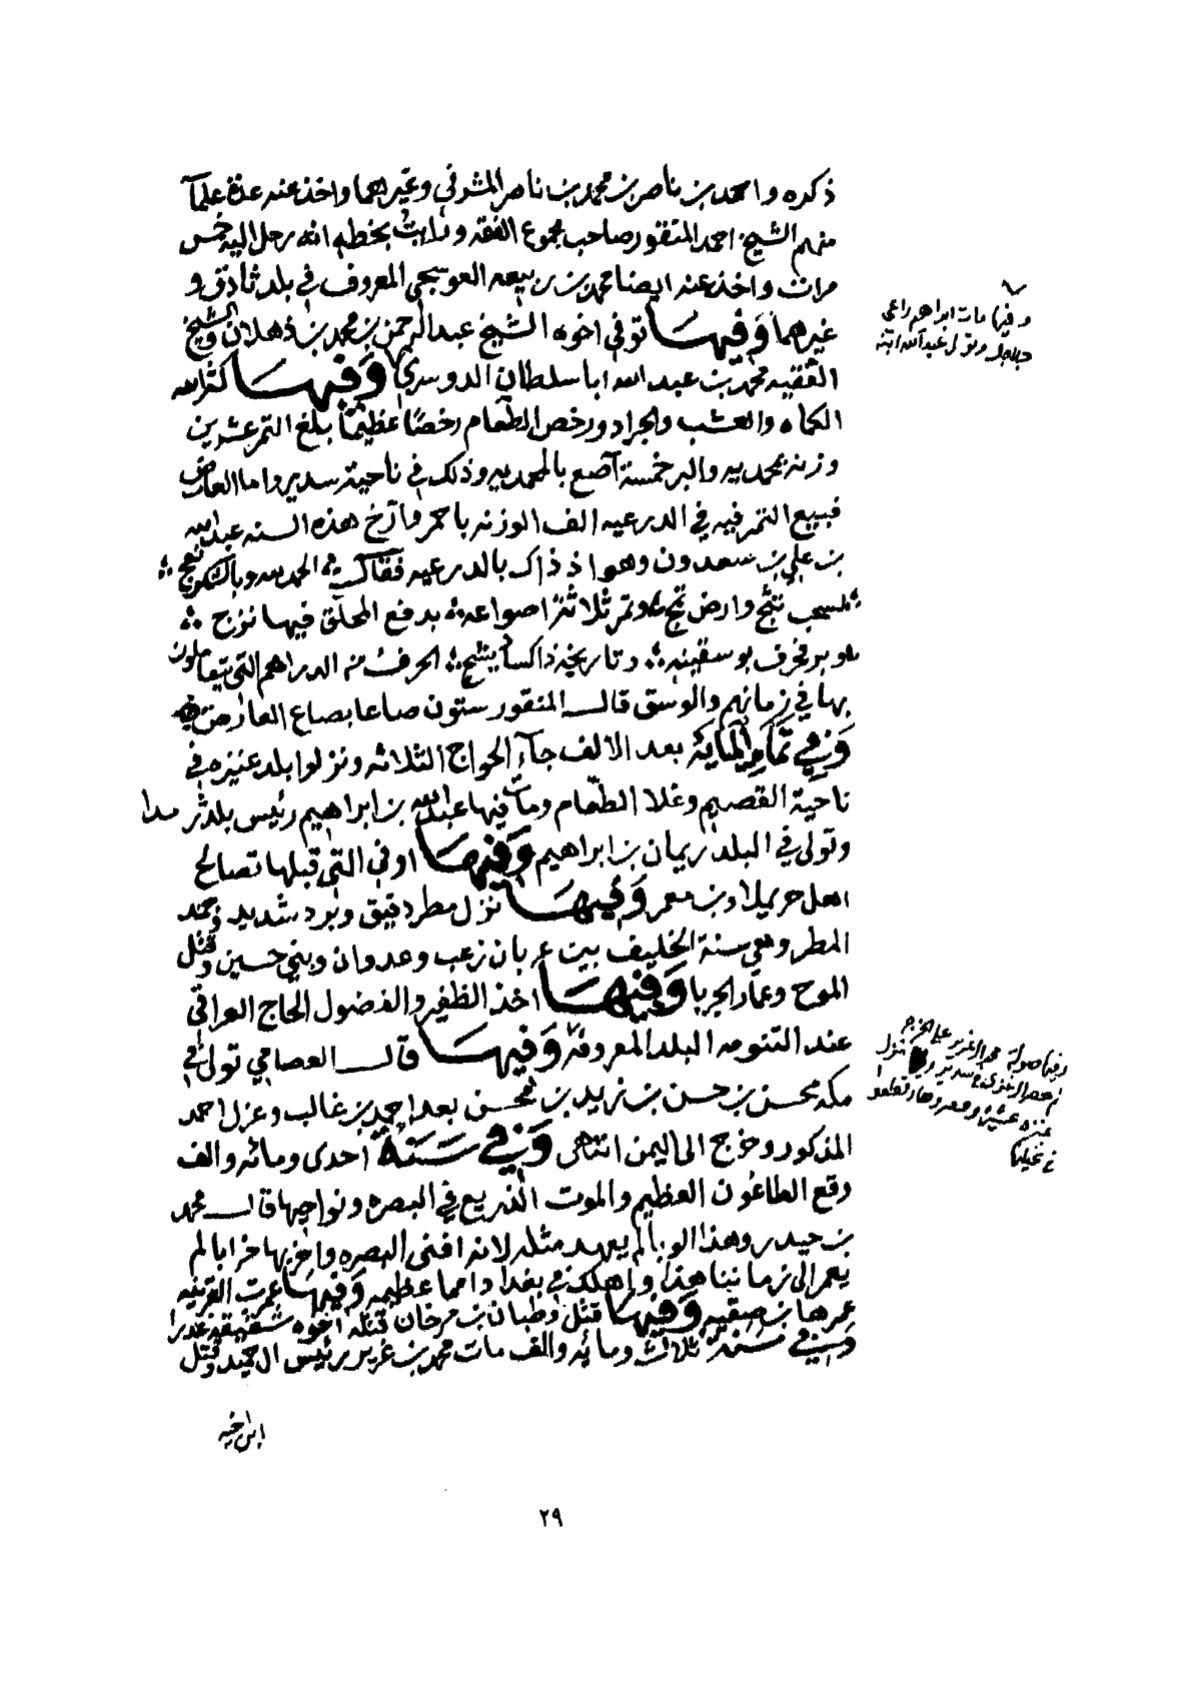 ذكره واحمد بن ناصر بن محمد بن ناصر المشرفي وغيرهما واخذ عنه عدة علمآ
منهم الشيخ احمد المنقور صاحب مجموع الفقه ورأيت بخطه انه رحل اليه خمس
مرات واخذ عنه ايضا محمد بن ربيعه العوسجي المعروف في بلد ثادق و
غيرهما وفيها توفي اخوه الشيخ عبدالرحمن بن محمد بن ذهلان والشيخ
الفقيه محمد بن عبد الله ابا سلطان الدوسري وفيها كثر الله
الكماه والعشب والجراد ورخص الطعام رخصًا عظيمًا بلغ التمر عشرين
وزنه بمحمديه والبر خمسة آصع بالمحمديه وذلك في ناحية سدير واما العارض
فبيع التمر فيه في الدرعيه الف الوزنه باحمر وآرخ هذه السنه عبدالله
بن علي بن سعدون وهو اذ ذاك بالدرعيه فقال الحمد لله وبالشكر نعج
السحب نثج وارض تج وتمر ثلاثة اصواعه بدفع المحلق فيها نزج
وبر بوسقينه وتاريخه ذا كساينتج الحرف من الدراهم التي يتعاملون
بها في زمانهم والوسق قال المنقور ستون صاعا بصاع العارض
وفي تمام المايه بعد الالف جآء الحواج الثلاثه ونزلوا بلد عنيزه في
ناحية القصيم وغلا الطعام ومات فيها عبدالله بن ابراهيم رئيس بلد ثرمدا
وتولى في البلد ريمان بن ابراهيم وفيها او في التي قبلها تصالح
اهل حريملا وبن معمر وفيها نزل مطر دقيق وبرد شديد وجمد
المطر وهي سنة الخليف بيت عربان زعب وعدوان وبني حسين وقتل
الموح وعمار الجربا وفيها اخذ الظفير والفضول الحاج العراقي
عند التنومه البلد المعروفة وفيها قال العصامي تولى في
مكه محسن بن حسن بن زيد بن محسن بعد احمد بن غالب وعزل احمد
المذكور وخرج الى اليمن انتهى وفي سنة احدى ومائه والف
وقع الطاعون العظيم والموت الذريع في البصره ونواحيها قال محمد
بن حيدر وهذا الوبا لم يعهد مثله لانه افنى البصره واخربها خرابا لم
يعمر الى زماننا هذا واهلك في بغداد امما عظيمه وفيها عمرت القرينه
عمرها بن صقيه وفيها قتل وطبان بن مرخان قتله اخوه شقيقه غدرا
وفي سنة ثلاث ومائه والف مات محمد بن غرير رئيس ال حميد وقتل
ابن اخيه
وفيها مات ابراهيم راعي
جلاجل وتولى عبدالله ابنه
وفيها صولة محمد ال غرير على الخرج
ثم حصار الغزي في سدير نزل
عنزه عشيره وحصروها وقطعو
٢٩